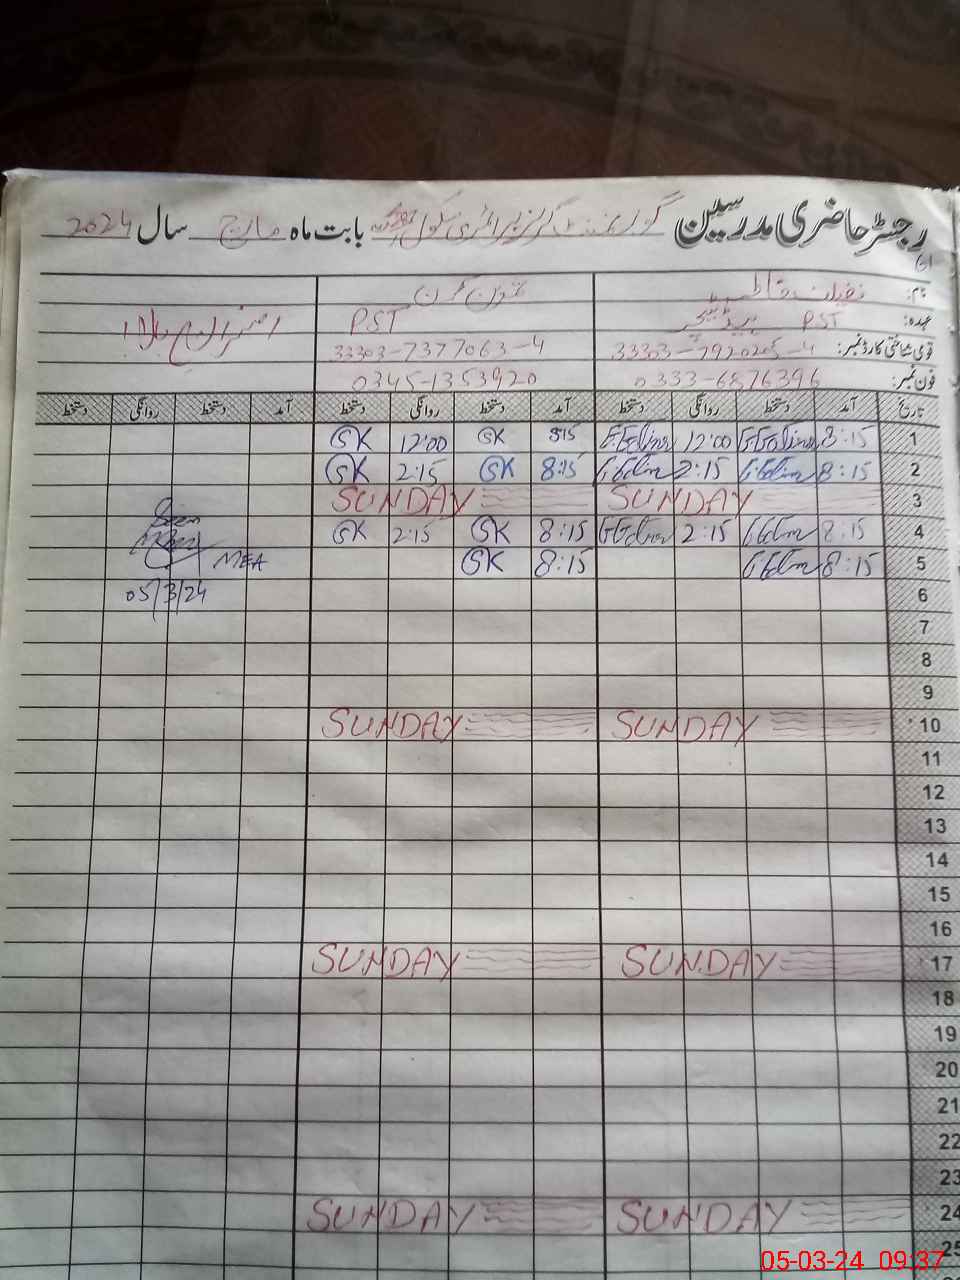 رجسٹر حاضری مدرسین گورنمنٹ گرلز پرائمری سکول بابت ماہ مارچ سال 2024
نام:
عہدہ: PST ہیڈ ٹیچر PST افسران بالا
قومی شناختی کارڈ نمبر: 33303-7920205-4 33303-7377063-4
فون نمبر: 0333-6876396 0345-1353920
تاریخ آمد دستخط روانگی دستخط آمد دستخط روانگی دستخط آمد دستخط روانگی دستخط
1 8:15 12:00 8:15 GK 12:00 GK
2 8:15 2:15 8:15 GK 2:15 GK
3 SUNDAY SUNDAY
4 8:15 2:15 8:15 GK 2:15 GK
5 8:15 8:15 GK MEA
6 05/3/24
7
8
9
10 SUNDAY SUNDAY
11
12
13
14
15
16
17 SUNDAY SUNDAY
18
19
20
21
22
23
24 SUNDAY SUNDAY
25
05-03-24 09:37